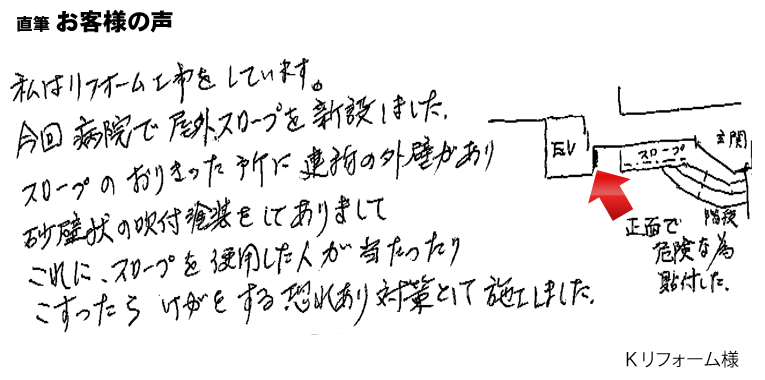 直筆 お客様の声
私はリフォーム工事をしています。
今回 病院で屋外スロープを新設しました。
スロープのおりきった所に建物の外壁があり
砂壁状の吹付塗装をしてありまして
これに、スロープを使用した人が当たったり
こすったら けがをする恐れあり対策として施工しました。
EV
スロープ
玄関
階段
正面で
危険な為
貼付した。
Kリフォーム様